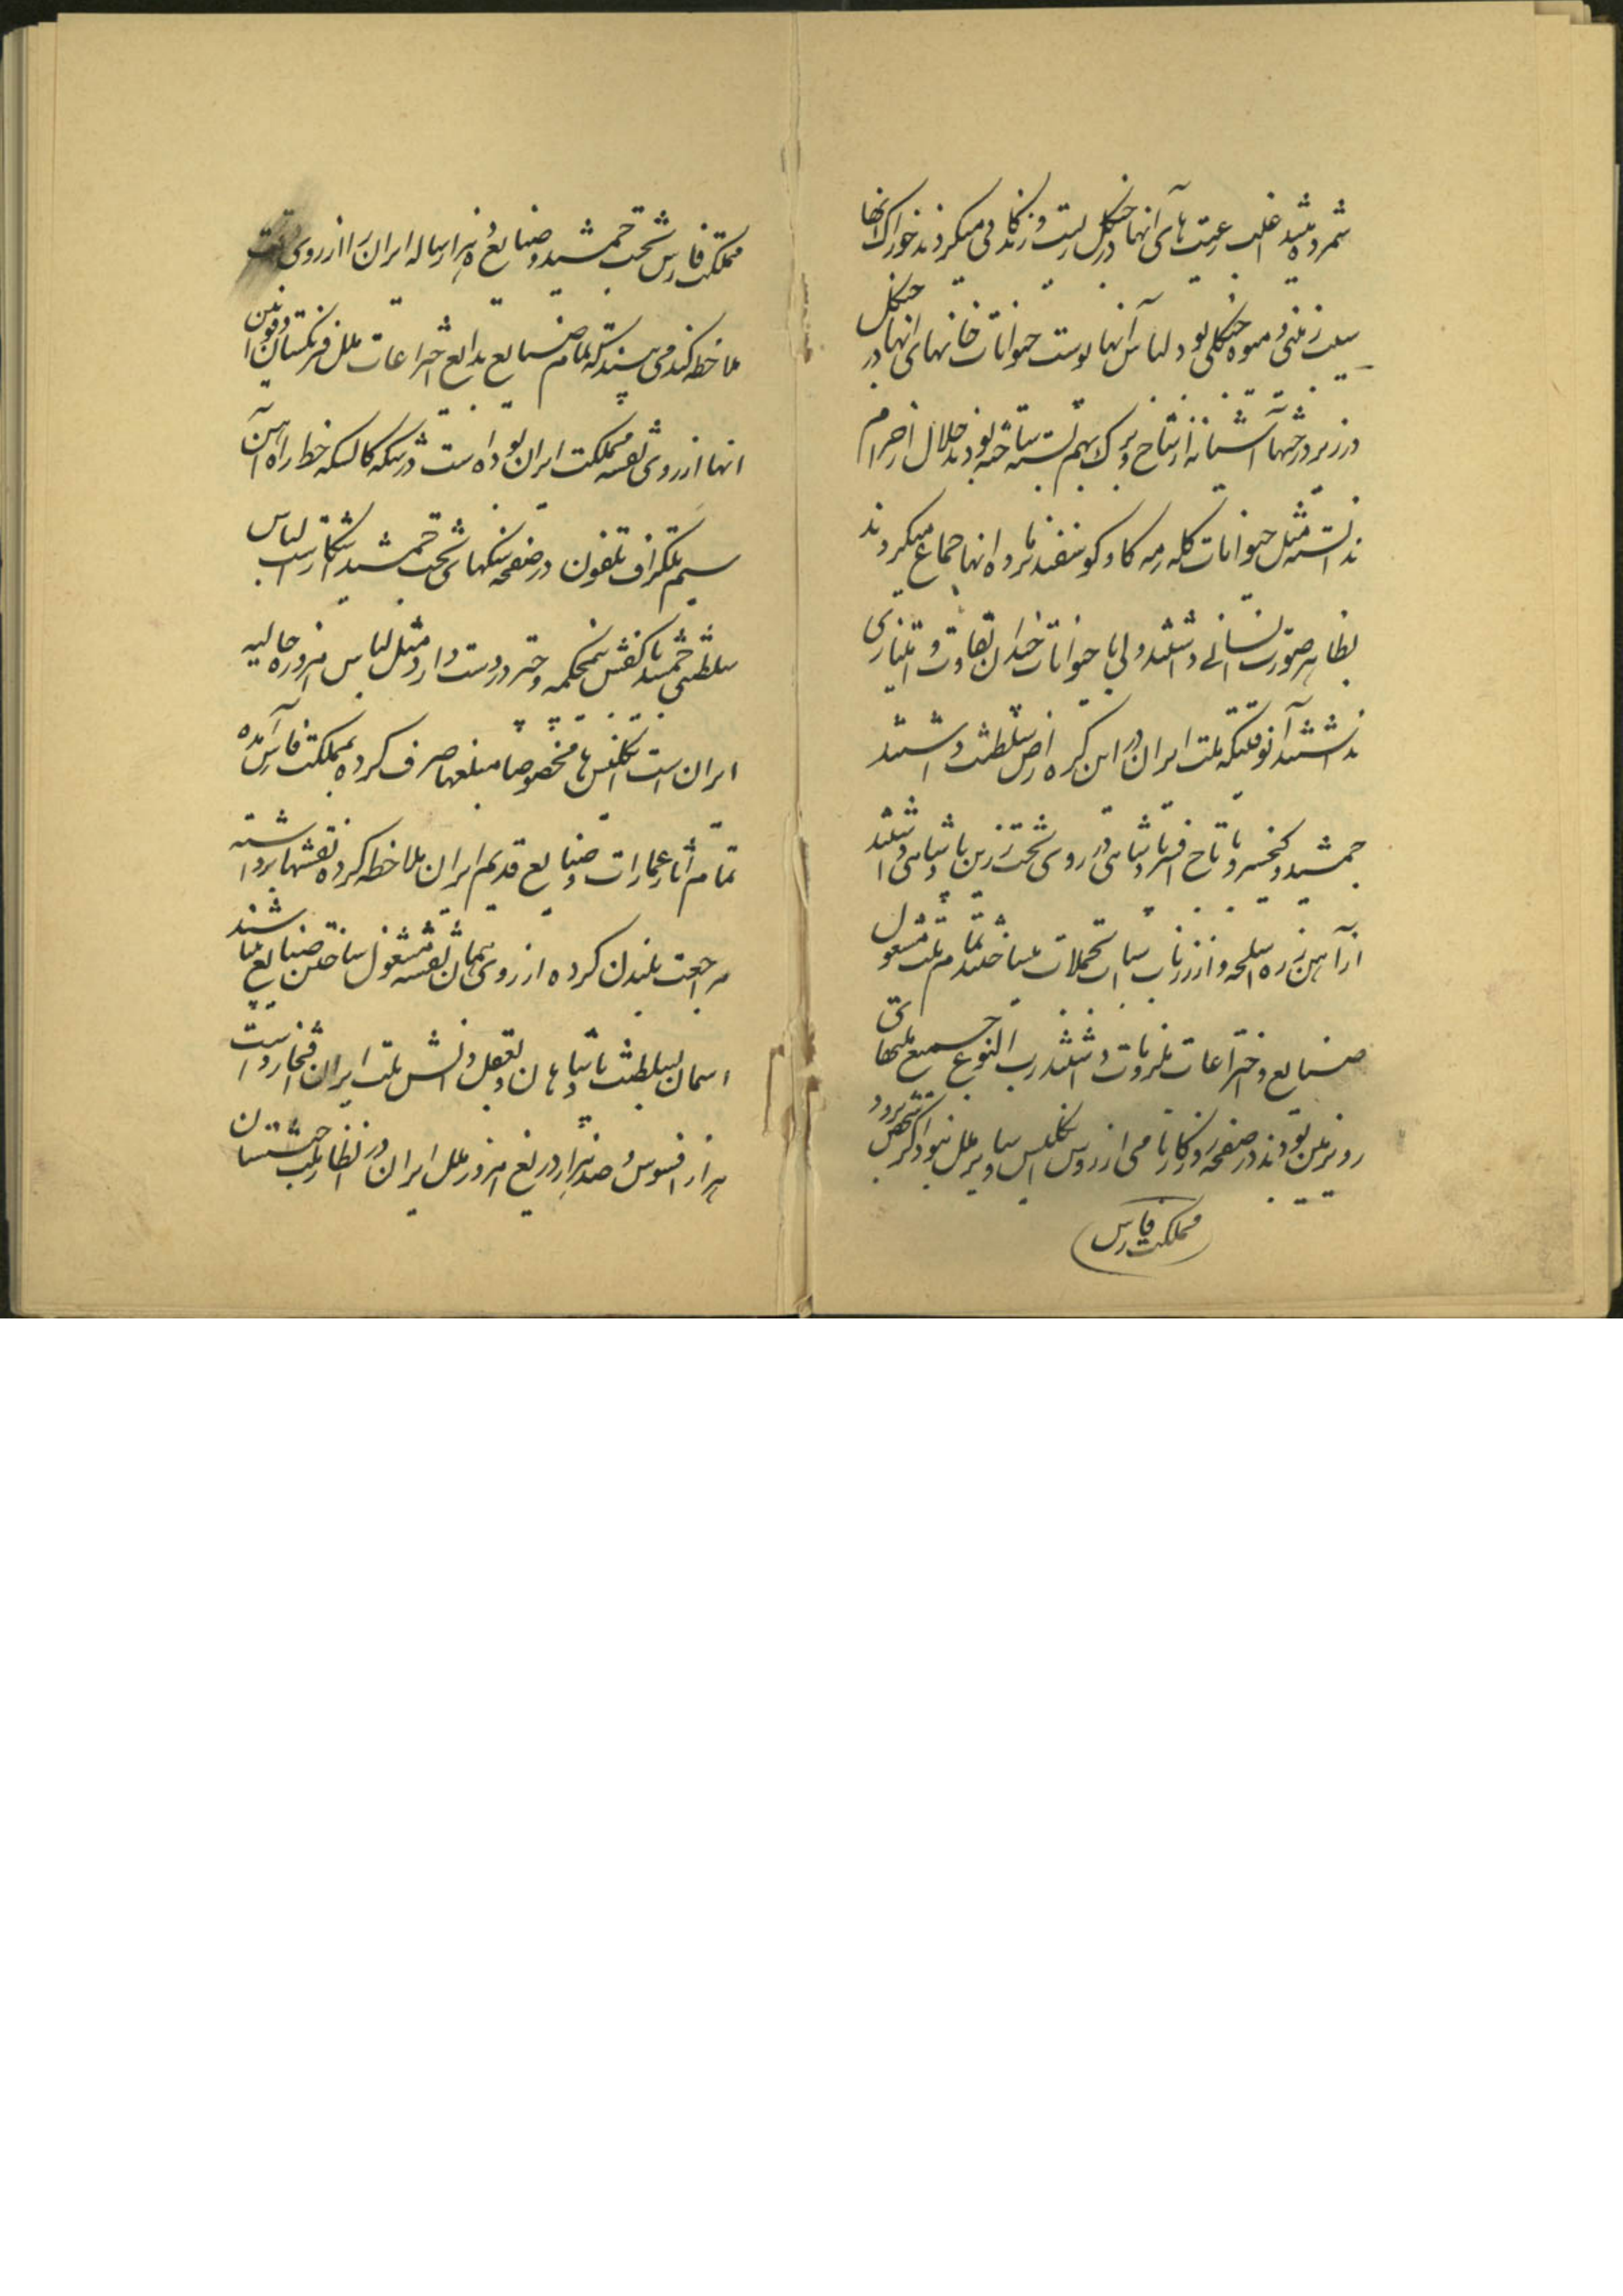 شمرده میشد اغلب رعیت های آنها در جنگل زیست و زندگانی میکردند خوراک آنها
سیب زمینی و میوه جنگلی بود لباس آنها پوست حیوانات خانهای آنها در جنگل
در زیر درختها آشیانه از شاخ و برگ بهم بسته ساخته بودند حلال از حرام
ندانسته مثل حیوانات گله رمه گاو گوسفند نر و ماده انها جماع میکردند
بظاهر صورت انسانی داشتند ولی با حیوانات چندان تفاوت و امتیازی
نداشتند آنوقتیکه ملت ایران در این کره ارض سلطنت داشتند
جمشید و کیخسرو با تاج افسر پادشاهی در روی تخت زرین پادشاهی داشتند
از آهن زره اسلحه و از زر ناب اسباب تجملات میساختند تمام ملت مشغول
صنایع و اختراعات ملزومات داشتند رب النوع جمیع ملتهای
روی زمین بودند در صفحه روزگار نامی از روس انگلیس و سایر ملل نبود اگر شخص برود
مملکت فارس
مملکت فارس تخت جمشید و صنایع ده هزار ساله ایران را از روی دقت
ملاحظه کند می بیند که تمام صنایع بدایع اختراعات ملل فرنگستان و قوانین
انها از روی نقشه مملکت ایران بوده است درشکه کالسکه خط راه آهن
سیم تلگراف تلفون در صفحه سنگهای تخت جمشید آشکار است لباس
سلطنتی جمشید با کفش نیمچکمه و چتر در دست دارد مثل لباس امروزه حالیه
ایران است انگلیس ها مخصوصا مبلغها صرف کرده بمملکت فارس آمده
تمام آثار عمارات و صنایع قدیم ایران ملاحظه کرده نقشها برداشته
مراجعت بلندن کرده از روی همان نقشه مشغول ساختن صنایع میباشند
اسمان بسلطنت پادشاهان و بعقل و دانش ملت ایران افتخار داشت
هزار افسوس و صد هزار دریغ امروز ملل ایران در انظار ملت